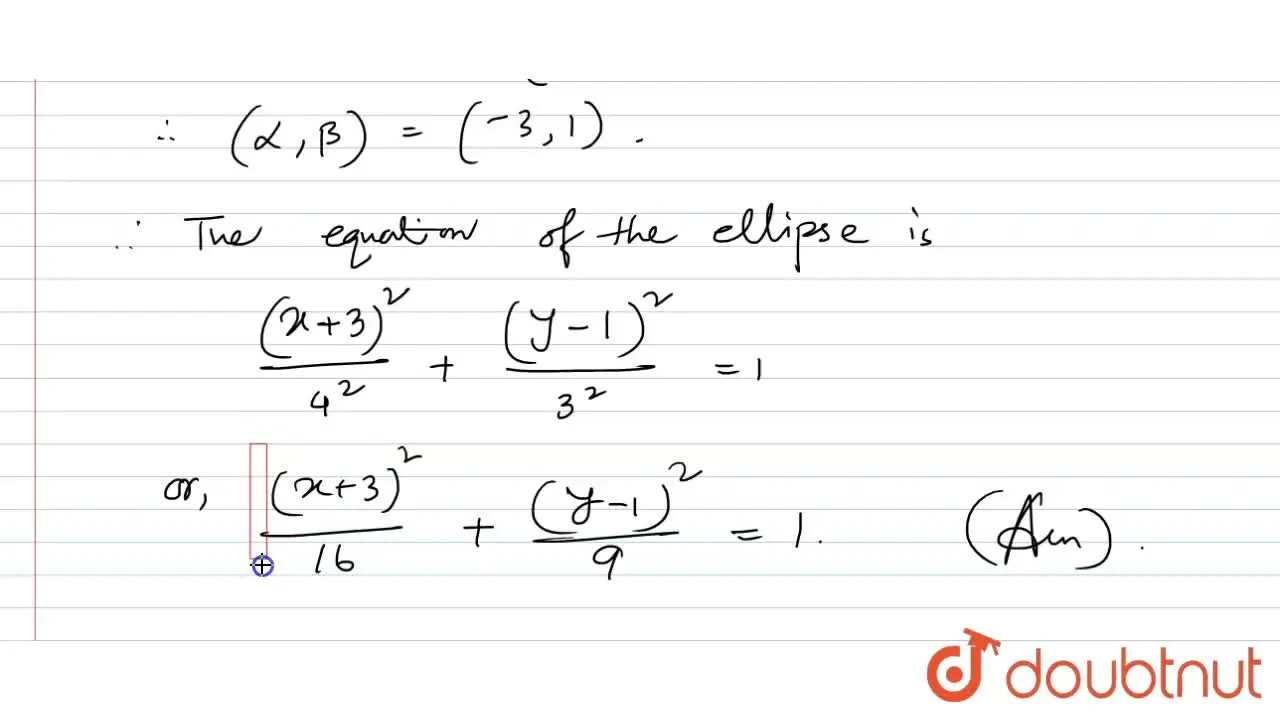 ∴ (α, β) = (-3, 1).
∴ The equation of the ellipse is
(x+3)²/4² + (y-1)²/3² = 1
or, (x+3)²/16 + (y-1)²/9 = 1. (Ans).
doubtnut